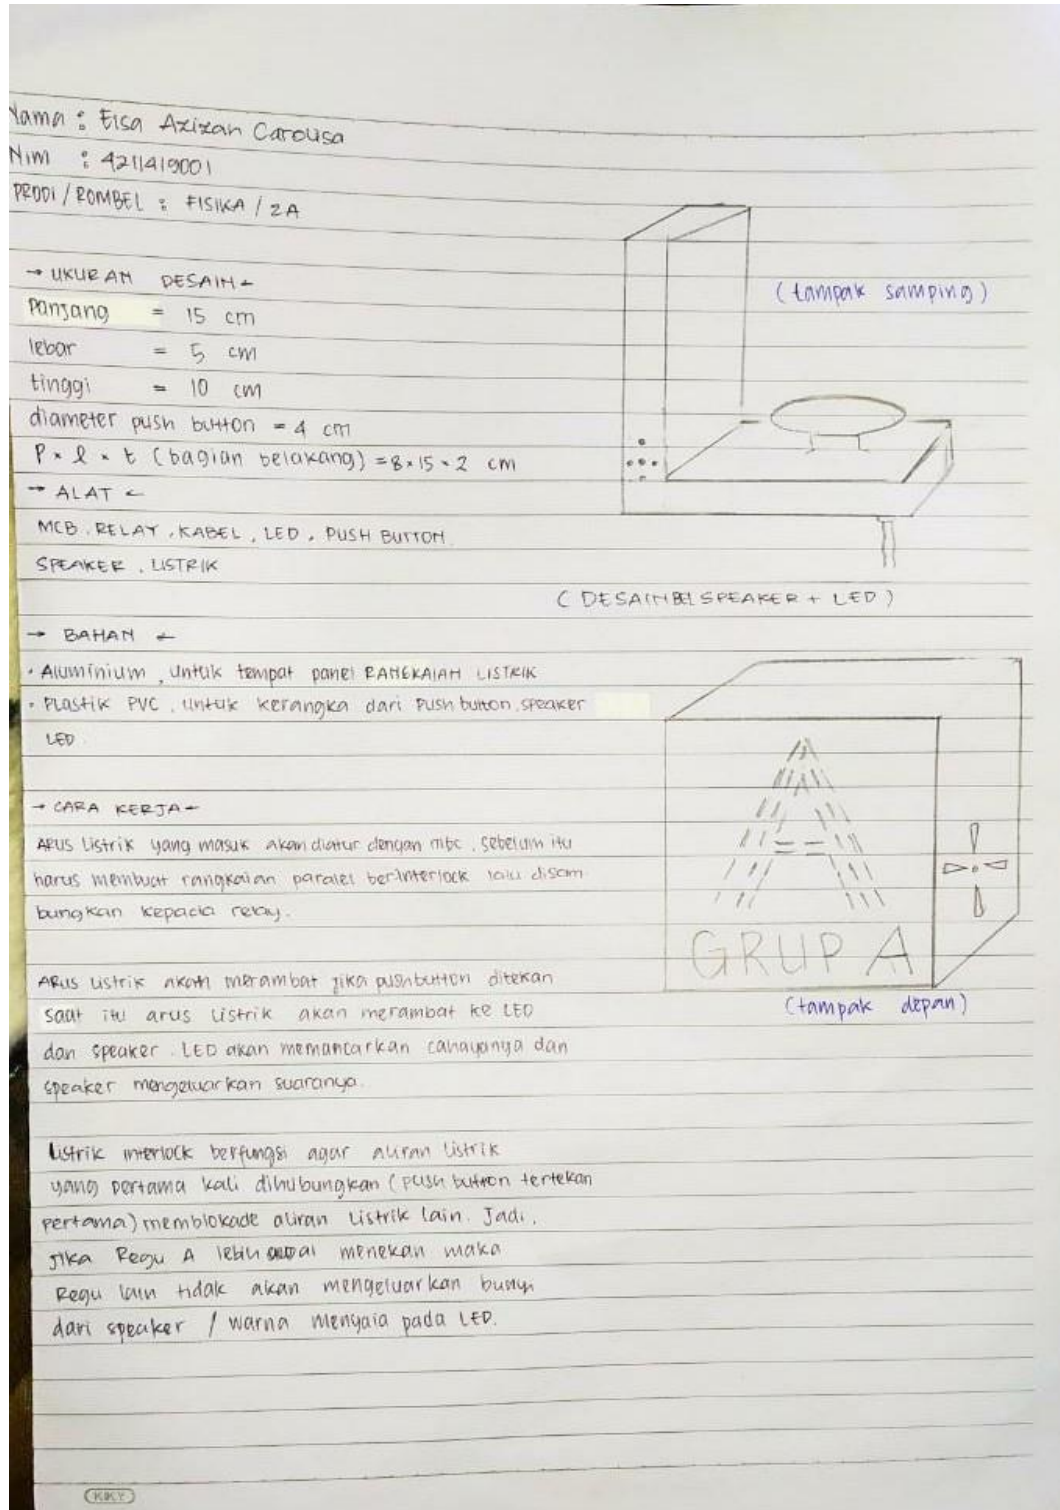 Nama : Elsa Azizan Carolisa
Nim : 4211419001
PRODI / ROMBEL : FISIKA / 2A
→ UKURAN DESAIN ←
Panjang = 15 cm
lebar = 5 cm
tinggi = 10 cm
diameter push button = 4 cm
P × l × t (bagian belakang) = 8 × 15 × 2 cm
→ ALAT ←
MCB, RELAY, KABEL, LED, PUSH BUTTON
SPEAKER, LISTRIK
(tampak samping)
(DESAIN BEL SPEAKER + LED)
→ BAHAN ←
• Aluminium, untuk tempat panel RANGKAIAN LISTRIK
• Plastik PVC, untuk kerangka dari push button, speaker
LED.
→ CARA KERJA ←
Arus Listrik yang masuk akan diatur dengan mbc, sebelum itu
harus membuat rangkaian paralel berinterlock lalu disam
bungkan kepada relay.
Arus Listrik akan merambat jika pushbutton ditekan
saat itu arus Listrik akan merambat ke LED
dan speaker. LED akan memancarkan cahayanya dan
speaker mengeluarkan suaranya.
Listrik interlock berfungsi agar aliran listrik
yang pertama kali dihubungkan (push button tertekan
pertama) memblokade aliran Listrik lain. Jadi,
jika Regu A lebih awal menekan maka
Regu lain tidak akan mengeluarkan bunyi
dari speaker / warna menyala pada LED.
GRUP A
(tampak depan)
KIKY